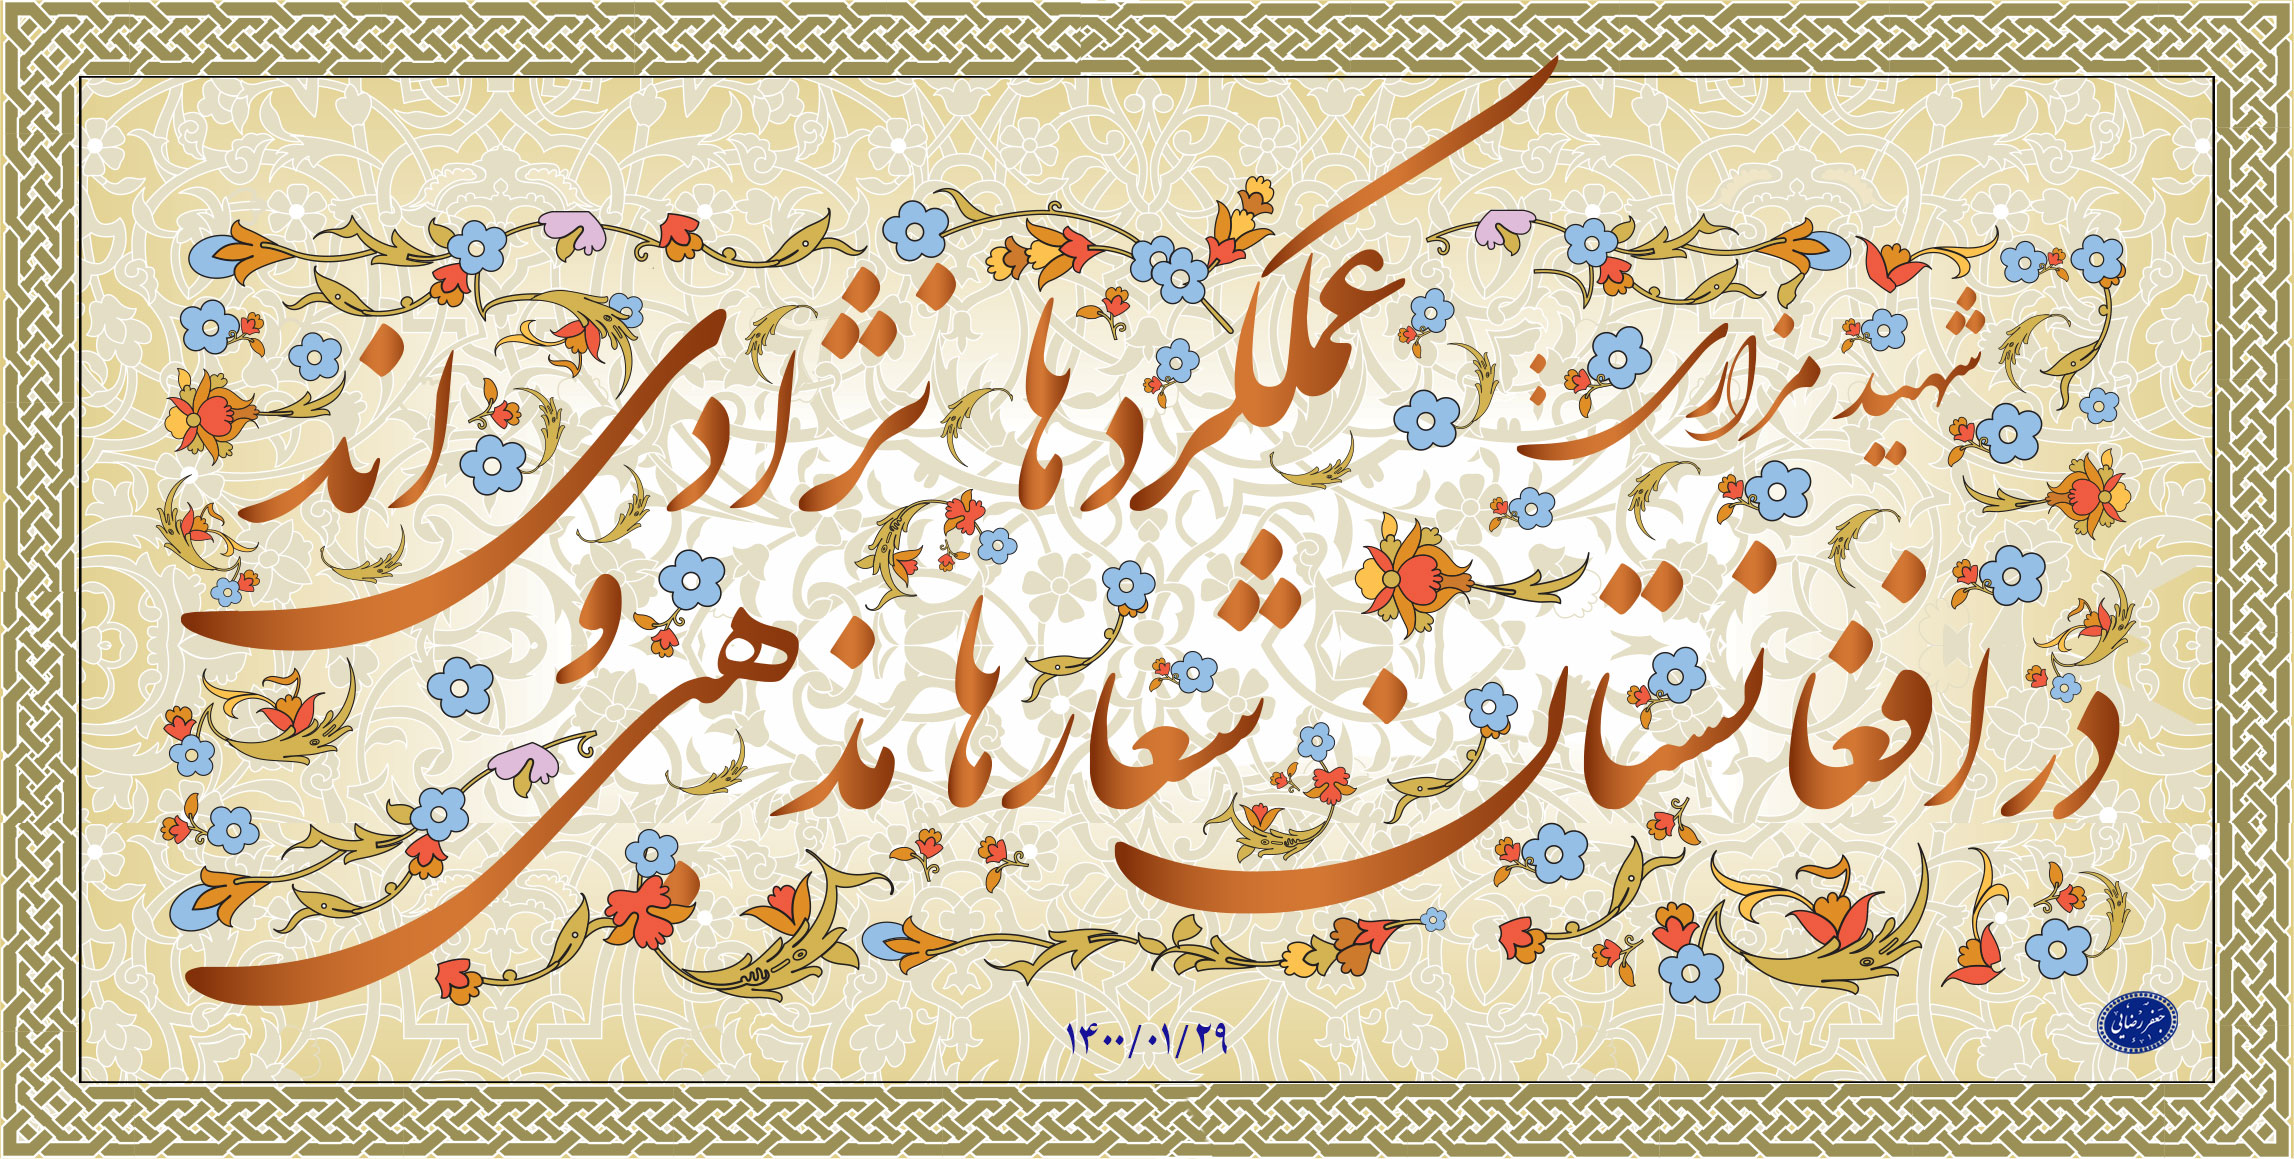 شهید مزاری:
در افغانستان شعارها مذهبی و
عملکردها نژادی اند
۱۴۰۰/۰۱/۲۹
جعفر رضایی